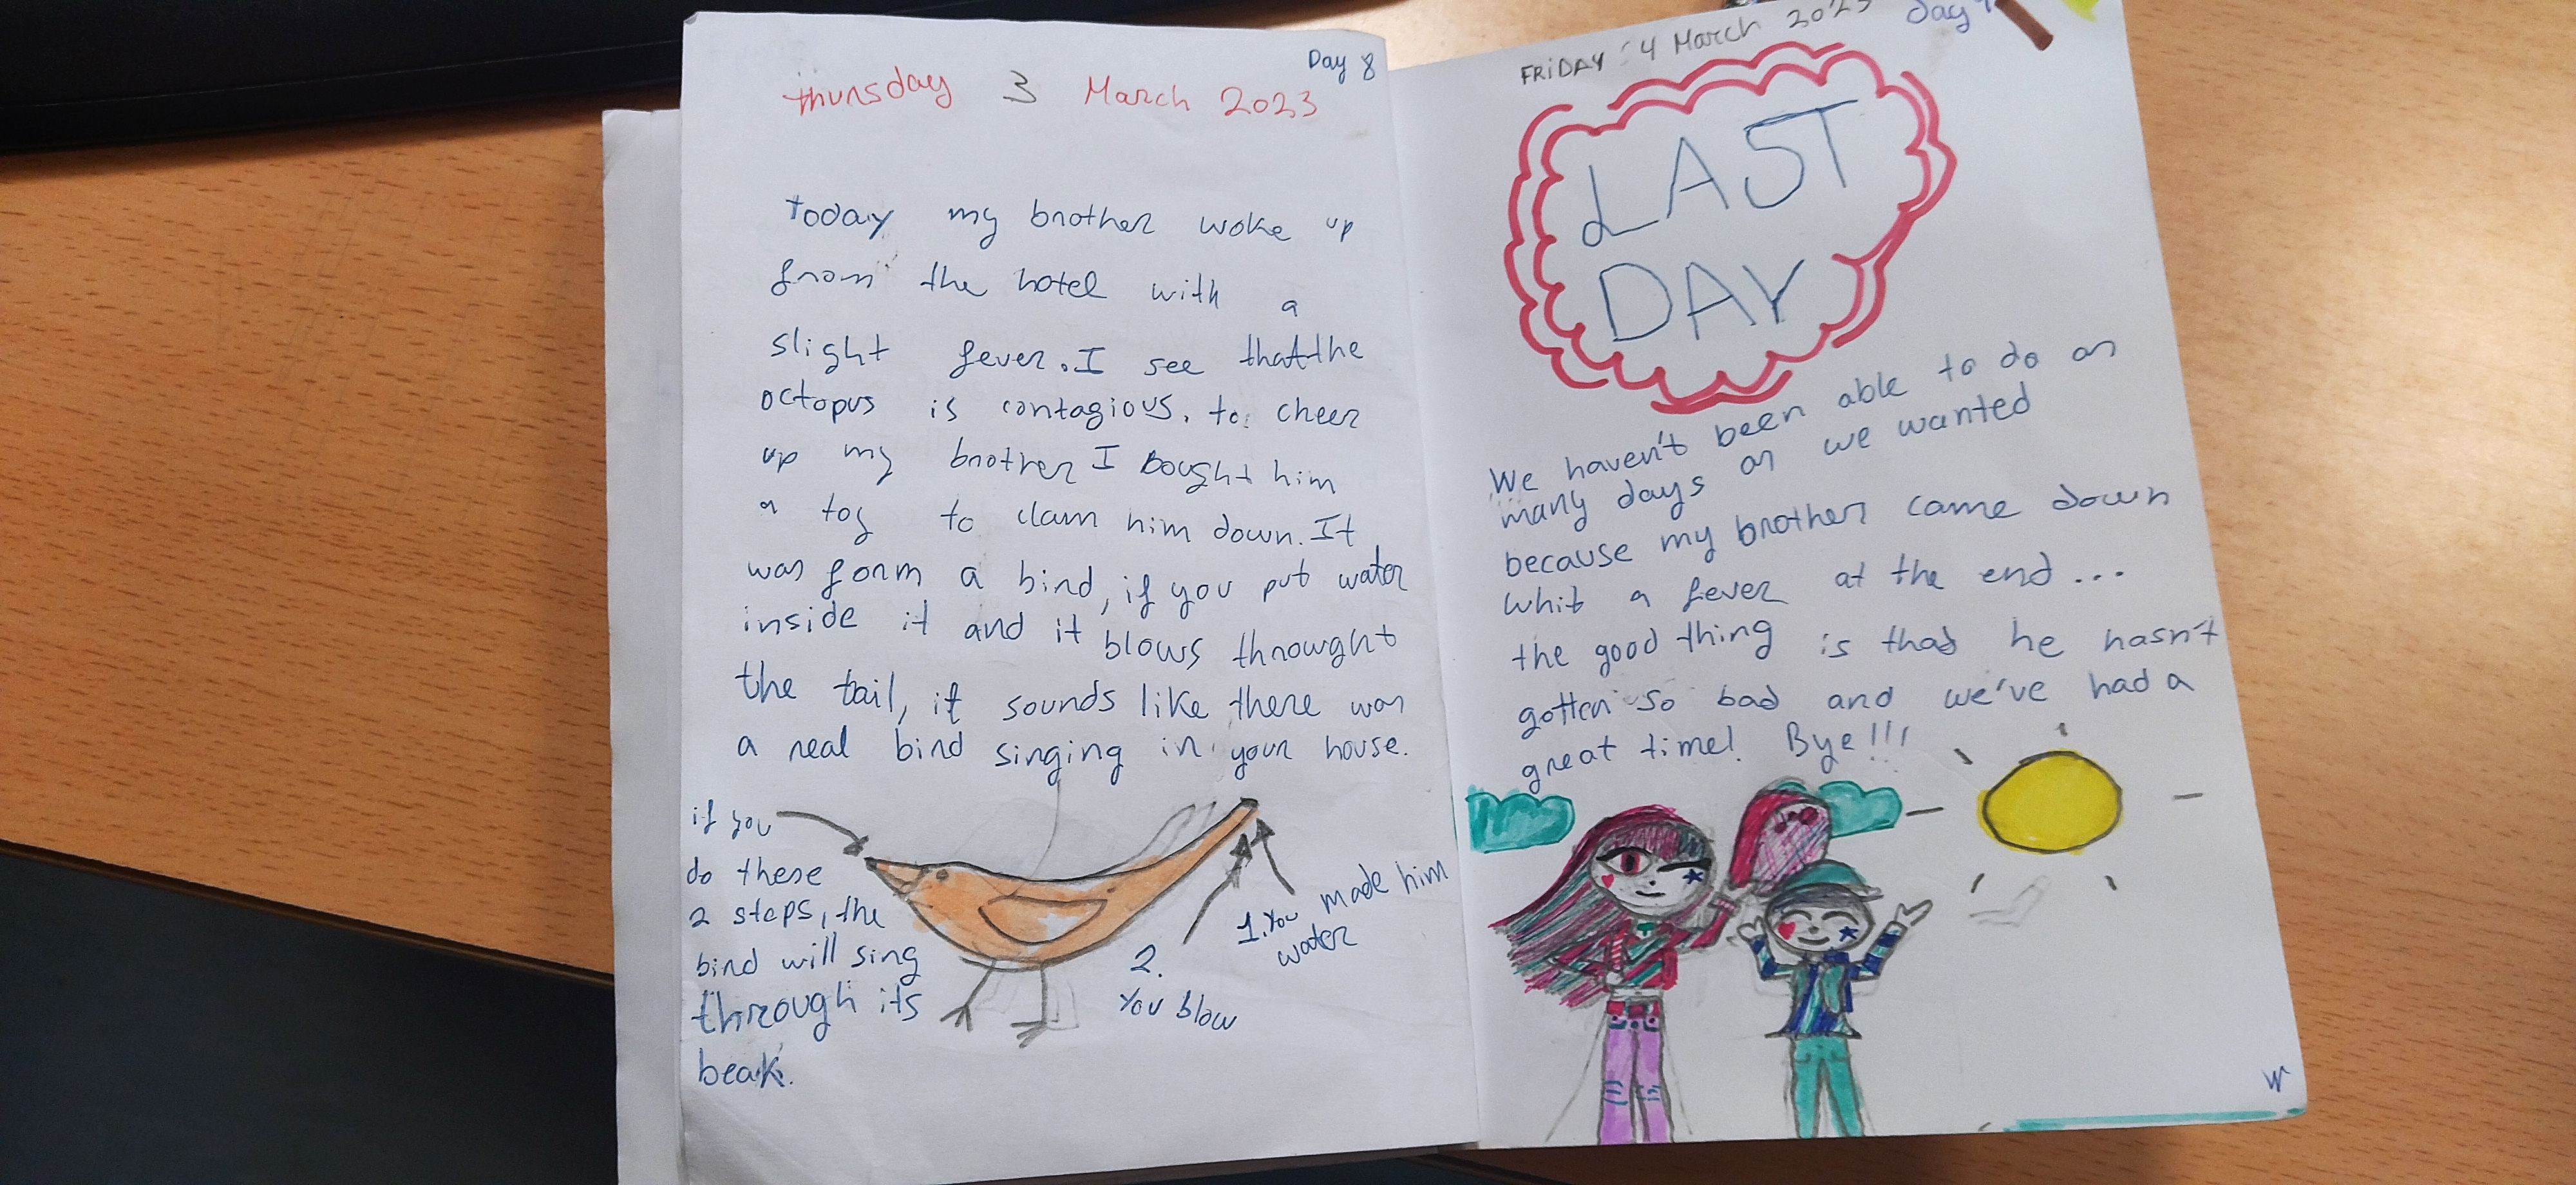 Day 8
thursday 3 March 2023
today my brother woke up
from the hotel with a
slight fever. I see that the
octopus is contagious. to cheer
up my brother I bought him
a toy to clam him down. It
was form a bird, if you put water
inside it and it blows throught
the tail, it sounds like there was
a real bird singing in your house.
if you
do these
2 steps, the
bird will sing
through its
beak.
2.
You blow
1. You made him
water
FRiDAY 4 March 2023
day
LAST
DAY
We haven't been able to do as
many days as we wanted
because my brother came down
whit a fever at the end...
the good thing is that he hasn't
gotten so bad and we've had a
great time! Bye!!!